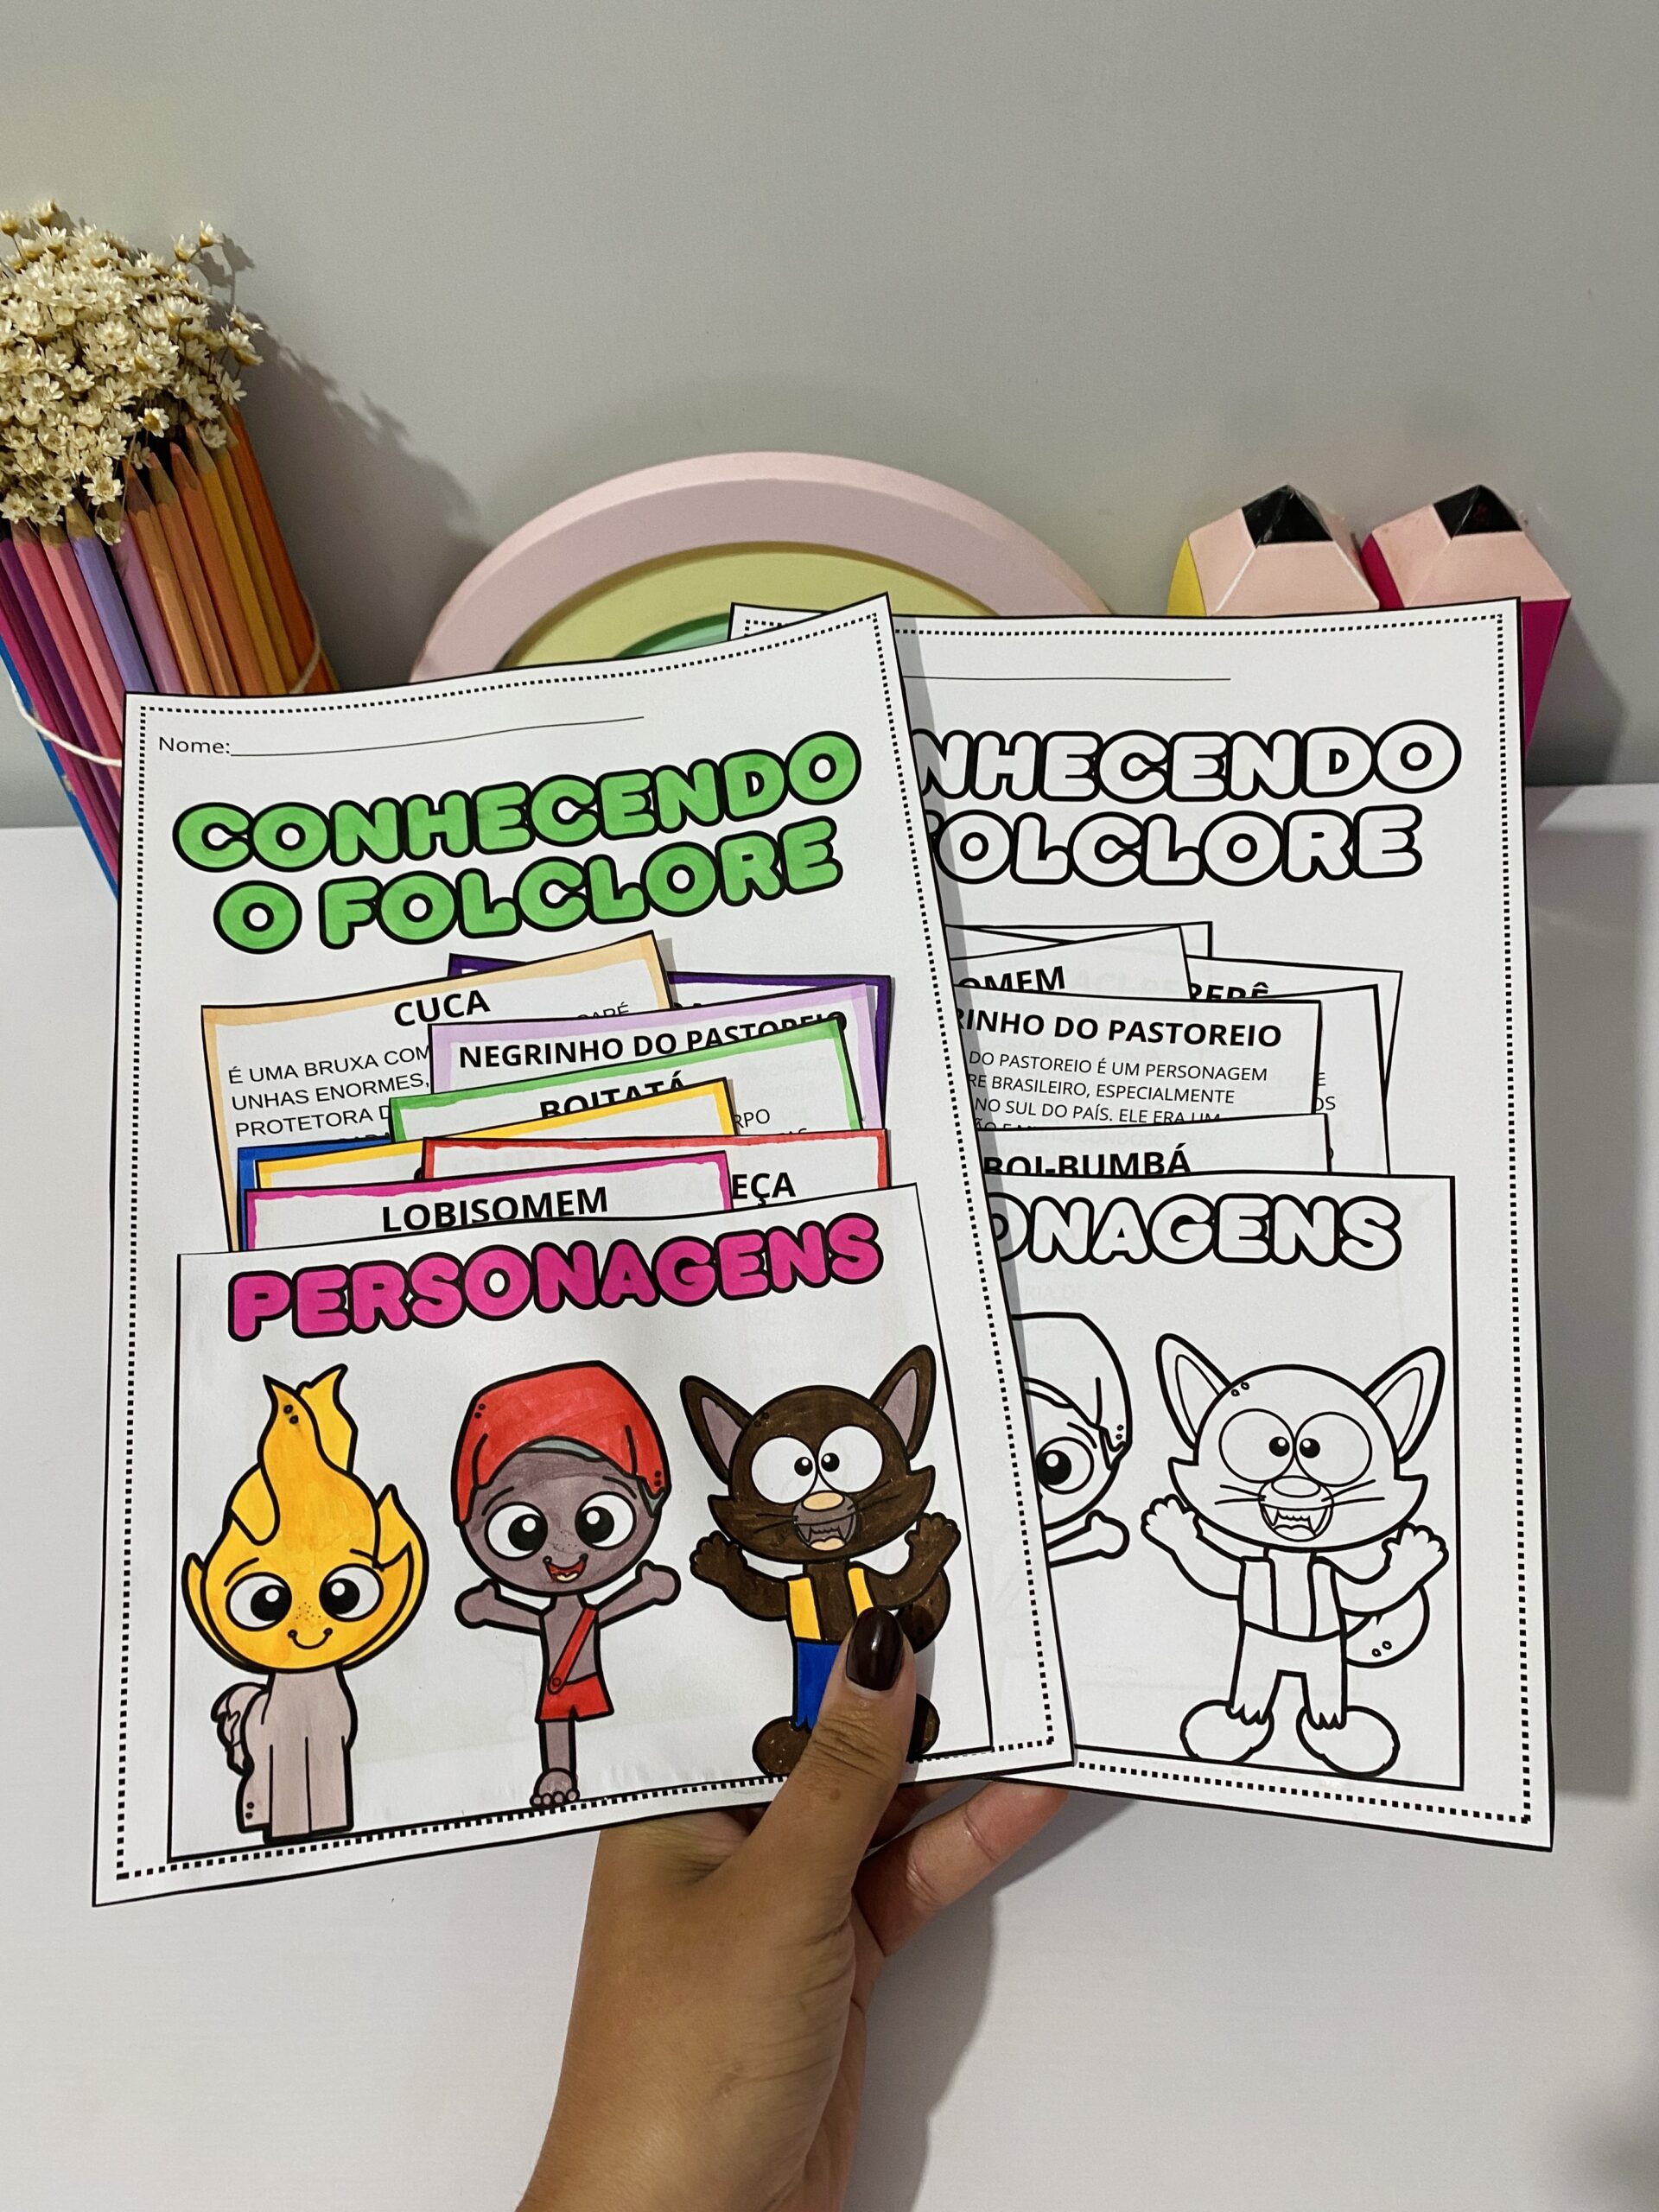 Nome:
CONHECENDO
O FOLCLORE
CUCA
É UMA BRUXA COM
UNHAS ENORMES,
PROTETORA
NEGRINHO DO PASTOREIO
BOITATÁ
RPO
EÇA
LOBISOMEM
PERSONAGENS
NHECENDO
OLCLORE
OMEM
RERÊ
RINHO DO PASTOREIO
DO PASTOREIO É UM PERSONAGEM
RE BRASILEIRO, ESPECIALMENTE
NO SUL DO PAÍS. ELE ERA UM
BOI-BUMBÁ
ONAGENS